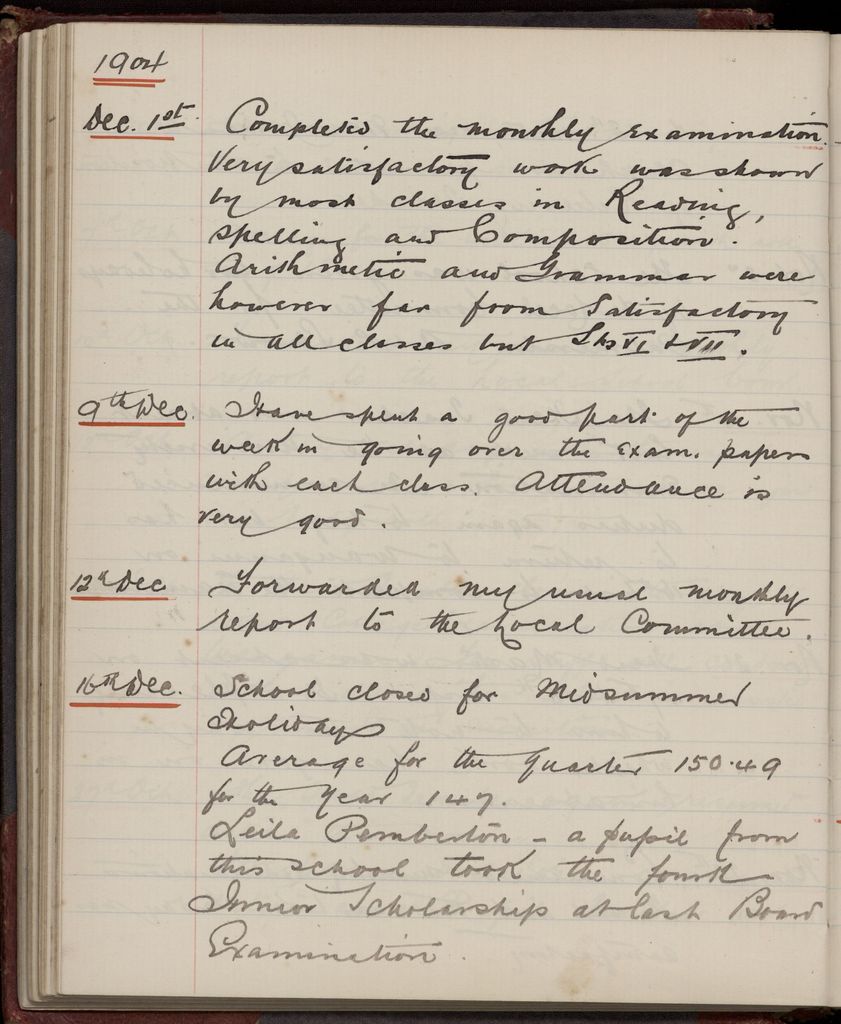 1904
Dec. 1st. Completed the monthly examination.
Very satisfactory work was shown
by most classes in Reading,
Spelling and Composition.
Arithmetic and Grammar were
however far from Satisfactory
in all classes but Sts VI & VII.
9th Dec. Have spent a good part of the
week in going over the exam. papers
with each class. Attendance is
very good.
12th Dec Forwarded my usual monthly
report to the Local Committee.
16th Dec. School closed for Midsummer
Holidays
Average for the Quarter 150.49
for the Year 147.
Leila Pemberton - a pupil from
this school took the fourth
Junior Scholarship at last Board
Examination.